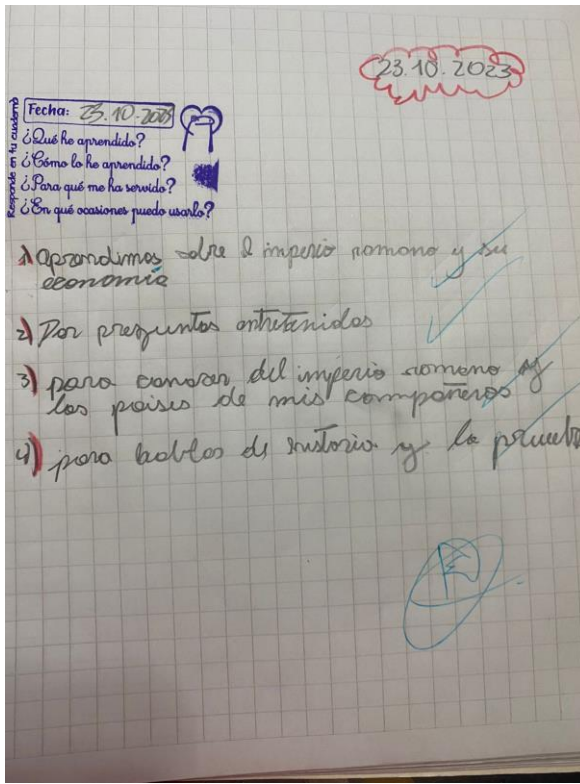 23.10.2023
Responde en tu cuaderno
Fecha: 23.10.2023
¿Qué he aprendido?
¿Cómo lo he aprendido?
¿Para qué me ha servido?
¿En qué ocasiones puedo usarlo?
1) aprendimos sobre el imperio romano y su
economía
2) Por preguntas entretenidas
3) para conocer del imperio romano y
los paises de mis compañeros
4) para hablar de historia y la prueba